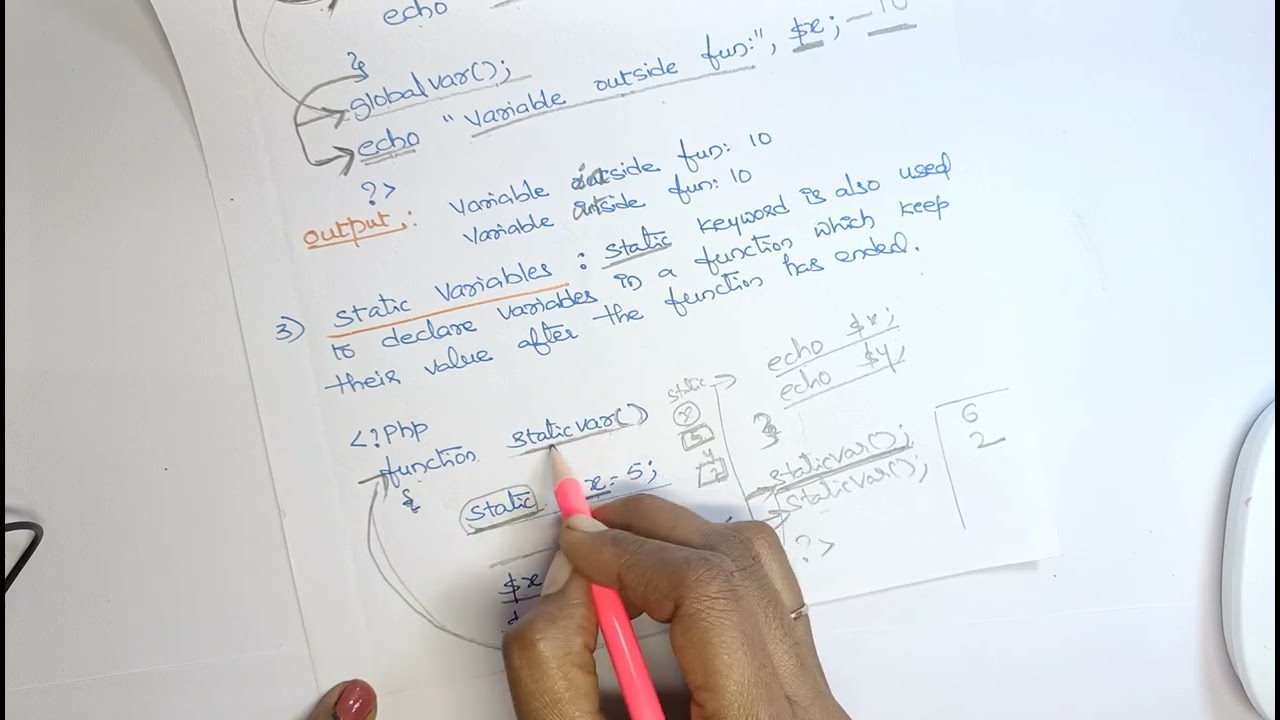 echo
}
globalvar();
echo "variable outside fun:", $x; — 10
?>
output: variable outside fun: 10
variable outside fun: 10
3) static variables : static keyword is also used
to declare variables in a function which keep
their value after the function has ended.
<?php
function staticvar()
{
static x = 5;
$x
echo $x;
echo $y;
}
staticvar();
staticvar();
?>
static
x
5
y
6
2